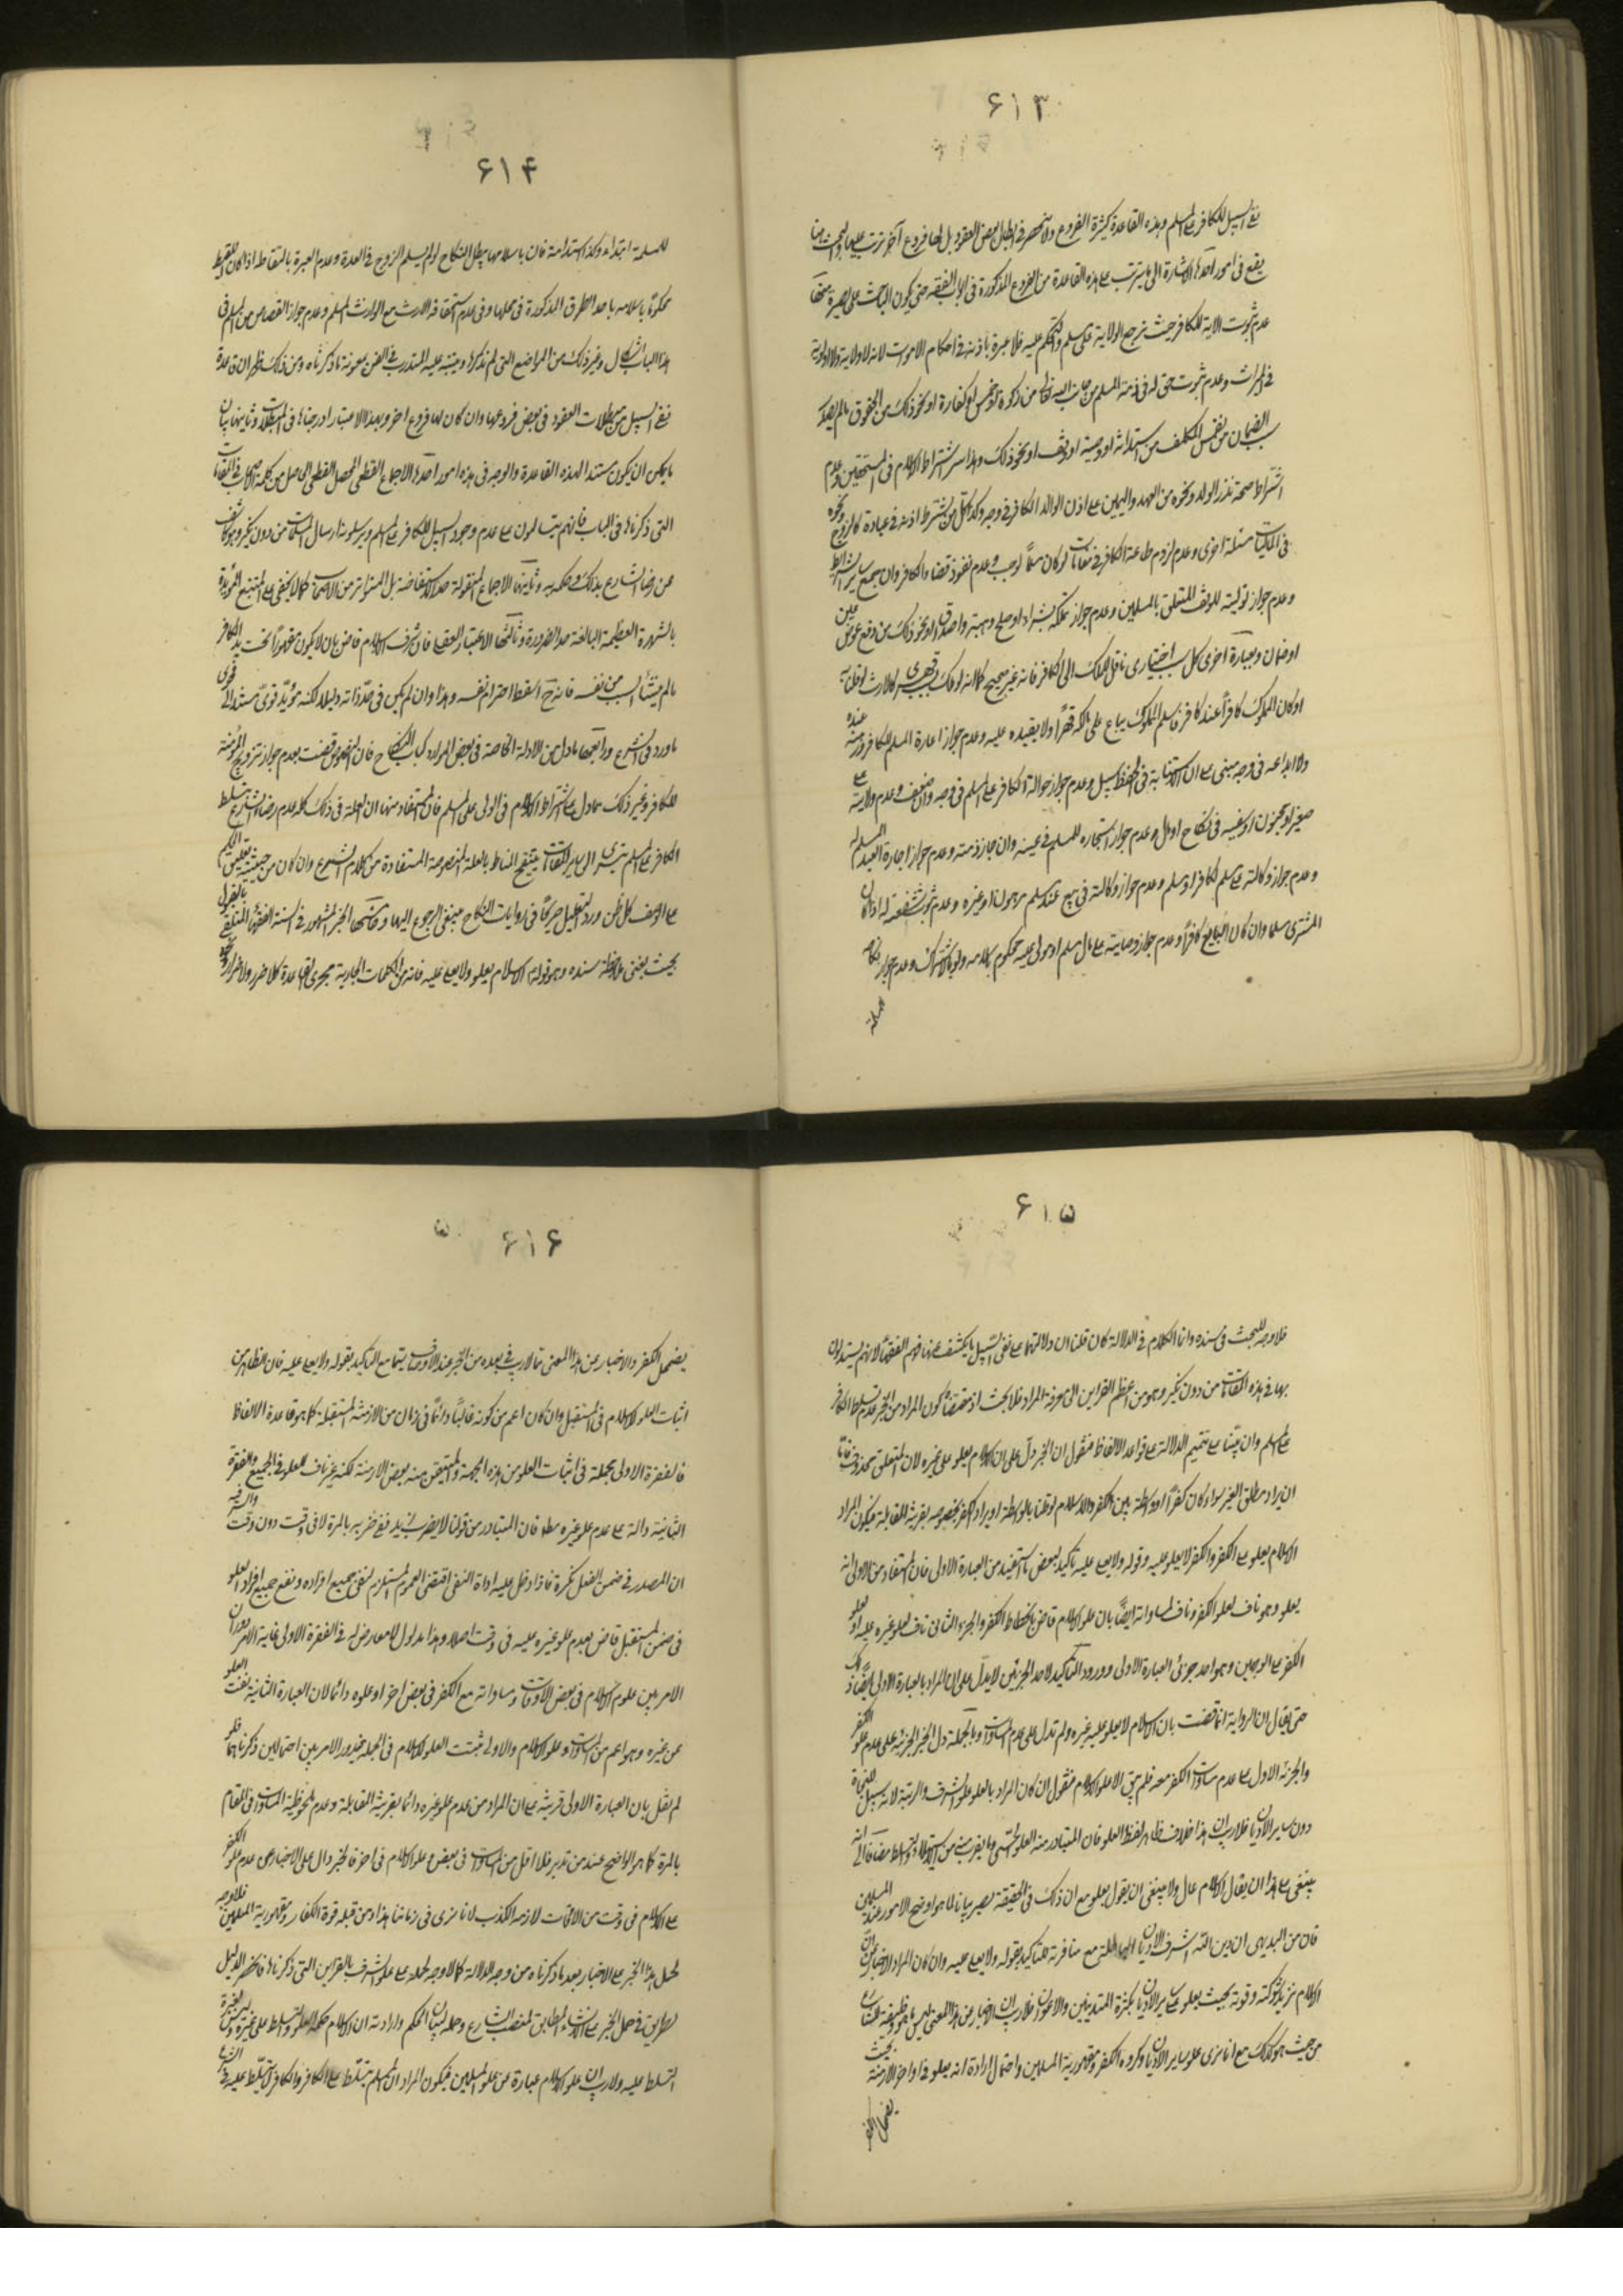 ۶۱۳
نفي السبيل للكافر على المسلم وهذه القاعدة كثيرة الفروع ولا تنحصر في ابطال بعض العقود بل لها فروع آخر تترتب عليها والبحث هنا
يقع في امور احدها الاشارة الى ما يترتب على هذه القاعدة من الفروع المذكورة في ابواب الفقه حتى يكون الباحث على بصيرة منها
عدم ثبوت الولاية للكافر حيث ترجع الولاية على مسلم والتحكم عليه فلا عبرة باذنه في احكام الاموات لانه لا ولاية ولا اولوية
في الميراث وعدم ثبوت حق له في ذمة المسلم من جانب الله تعالى من زكوة او خمس او كفارة او نحو ذلك من الحقوق ما لم يصدر
سبب الضمان من نفس المكلف من استدانة او وصية او وقف او نحو ذلك وهذا سر اشتراط الاسلام في المستحقين وعدم
اشتراط صحة نذر الولد ونحوه من العهد واليمين على اذن الوالد الكافر في وجه وكذا كل من يشترط اذنه في عبادة كالزوج ونحوه
في الماليات مسئلة اخرى وعدم لزوم طاعة الكافر في مقامات لو كان مسلماً لوجب وعدم نفوذ قضاء الكافر وان جمع سائر الشرائط
وعدم جواز توليته للوقف المتعلق بالمسلمين وعدم جواز تملكه بشراء او صلح وهبة واصداق او نحو ذلك من دفع عوض عين
او ضمان وبعبارة اخرى كل سبب اختياري ناقل للملك الى الكافر فانه غير صحيح كما انه لو ملك بسبب قهري كالارث لو قلنا به
او كان المملوك كافراً عند كافر فاسلم المملوك يباع على مالكه قهراً ولا يبقى يده عليه وعدم جواز اعارة المسلم للكافر ورهنه عنده
ولا ايداعه في وجه مبني على ان الاستنابة في الحفظ سبيل وعدم جواز حوالة الكافر على المسلم في وجه وان ضعف وعدم ولايته على
صغير او مجنون او سفيه في نكاح او مال وعدم جواز استيجاره للمسلم في عينه وان جاز ذمته وعدم جواز اجارة العبد المسلم له
وعدم جواز وكالته على مسلم لكافر او مسلم وعدم جواز وكالة في بيع عند مسلم مرهونا او غيره وعدم ثبوت شفعته له اذا كان
المشتري مسلما وان كان البايع كافراً وعدم جواز وصايته على مال مسلم او مولى عليه محكوم باسلامه ولو بالاشتراك وعدم جواز نكاحه
المسلمة
۶۱۴
للمسلمة ابتداء وكذا استدامة فان باسلامها يبطل النكاح لو لم يسلم الزوج في العدة وعدم العبرة بالتقاطه اذا كان اللقيط
محكوماً باسلامه باحد الطرق المذكورة في محلها وفي عدم استحقاقه الارث مع الوارث المسلم وعدم جواز القصاص من المسلم في
هذا الباب اشكال وغير ذلك من المواضع التي لم نذكرها ويتنبه عليه المتدرب في الفن بمعونة ما ذكرناه ومن ذلك ظهر ان قاعدة
نفي السبيل من مبطلات العقود في بعض فروعها وان كان لها فروع اخر وبهذا الاعتبار ادرجناها في المبطلات وثانيها بيان
ما يمكن ان يكون مستندا لهذه القاعدة والوجه في هذه امور احدها الاجماع القطعي المحصل القطعي الحاصل من كلمة الاصحاب في المقامات
التي ذكرناها في الباب فانهم يتسالمون على عدم وجود السبيل للكافر على المسلم ويرسلونه ارسال المسلمات من دون نكير وهو كاشف
عن رضا الشارع بذلك وحكمه به وثانيها الاجماع المنقولة حد الاستفاضة بل المتواتر من الاصحاب كما لا يخفى على المتتبع المؤيدة
بالشهرة العظيمة البالغة حد الضرورة وثالثها الاعتبار العقلي فان شرف الاسلام قاض بان لا يكون مقهوراً تحت يد الكافر
ما لم ينشأ السبب من نفسه فانه ح اسقط احترام نفسه وهذا وان لم يكن في حد ذاته دليلا لكنه مؤيد قوي مستند الى فحوى
ما ورد في الشرع ورابعها ما دل من الادلة الخاصة في بعض الموارد كباب النكاح فان النصوص قضت بعدم جواز تزويج المؤمنة
للكافر وغير ذلك مما دل على اشتراط الاسلام في الولي على المسلم فان المستفاد منها ان العلة في ذلك كله عدم رضاء الشارع بتسلط
الكافر على المسلم يتسرى الى ساير المقامات بتنقيح المناط بالعلة المنصوصة المستفادة من كلام الشرع وان كان من حيثية تعليق الحكم
على الوصف كل ظن ورد التعليل صريحاً في روايات النكاح فينبغي الرجوع اليها وخامسها الخبر المشهور في السنة الفقهاء المتلقى بالقبول
بحيث يغني عن ملاحظة سنده وهو قوله الاسلام يعلو ولا يعلى عليه فانه من الكلمات الجارية مجرى القاعدة كلا ضرر ولا ضرار ونحوه
۶۱۵
فلا وجه للبحث في سنده وانما الكلام في الدلالة كان قلنا ان دلالتها على نفي السبيل مما يكشف عنها فهم الفقهاء لانهم يستدلون
بها في هذه المقامات من دون نكير وهو من اعظم القراين الى معرفة المراد فلا بحث اذ مقتضاه كون المراد من الخبر عدم تسلط الكافر
على المسلم وان بنينا على تتميم الدلالة على قواعد الالفاظ فنقول ان الخبر دل على ان الاسلام يعلو على غيره لان المتعلق محذوف فاما
ان يراد مطلق الغير سواء كان كفراً او واسطة بين الكفر والاسلام لو قلنا بالواسطة او يراد الكفر بخصوصه بقرينة المقابلة فيكون المراد
الاسلام يعلو على الكفر والكفر لا يعلو عليه وقوله ولا يعلى عليه تاكيد لبعض ما استفيد من العبارة الاولى فان المستفاد من الاولى انه
يعلو وهو ناف لعلو الكفر وناف لمساواته ايضاً بان علو الاسلام قاض بانحطاط الكفر والجزء الثاني ناف لعلو غيره عليه او لعلو
الكفر على الوجهين وهو احد جزئي العبارة الاولى وورود التاكيد لاحد الجزئين لا يدل على ان المراد بالعبارة الاولى ايضاً ذلك
حتى يقال ان الرواية انما قضت بان الاسلام لا يعلو عليه غيره ولم تدل على عدم المساوات وبالجملة دل الخبر الجزء على عدم علو الكفر
والجزء الاول على عدم مساوات الكفر معه فلم يبق الا علو الاسلام فنقول ان كان المراد بالعلو علو الشرف والرتبة لانه سبيل النجاة
دون ساير الاديان فلا ريب ان هذا خلاف ظاهر لفظ العلو فان المتبادر منه العلو الحسي وما يقرب منه من الاستيلاء والتسلط مضافا الى انه
ينبغي على هذا ان يقال الاسلام عال ولا ينبغي ان يقول يعلو مع ان ذلك في الحقيقة يصير بيانا لما هو اوضح الامور عند المسلمين
فان من البديهي ان دين الله اشرف الاديان الباطلة مع منافرته للتاكيد بقوله ولا يعلى عليه وان كان المراد الاخبار عن ان
الاسلام يزيد شوكته وقوته بحيث يعلو على ساير الاديان بكثرة المتدينين والاعوان فلا ريب ان الاخبار عن هذا المعنى ليس مما هو وظيفة للشارع
من حيث هو كذلك مع انا نرى علو ساير الاديان وكروه الكفر ومقهورية المسلمين واحتمال ارادة انه يعلو في اواخر الازمنة بحيث
يضمحل الكفر
۶۱۶
يضمحل الكفر والاخبار عن هذا المعنى مما لا ريب في بعده من الخبر عند الانصاف سيما مع التاكيد بقوله ولا يعلى عليه فان الظاهر من
اثبات العلو للاسلام في المستقبل وان كان اعم من كونه غالباً دائماً في زمان من الازمنة المستقبلة كما هو قاعدة الالفاظ
فالفقرة الاولى مجملة في اثبات العلو من هذه الجهة والمتيقن منه بعض الازمنة لكنه غير ناف للعلو في الجميع والفقرة
الثانية دالة على عدم علو غيره مطلقا فان المتبادر من قولنا لا يضرب زيد نفي ضربه بالمرة لا في وقت دون وقت والسر فيه
ان المصدر في ضمن الفعل نكرة فاذا دخل عليه اداة النفي اقتضى العموم المستلزم لنفي جميع افراده ونفي جميع افراد العلو
في ضمن المستقبل قاض بعدم علو غيره عليه في وقت اصلا وهذا مدلول لا معارض له في الفقرة الاولى غاية الامر دوران
الامر بين علو الاسلام في بعض الاوقات ومساواته مع الكفر في بعض اخر او علوه دائما لان العبارة الثانية نفت العلو
عن غيره وهو اعم من المساوات وعلو الاسلام والاولى ثبتت العلو للاسلام في الجملة فيدور الامر بين احتمالين ذكرناهما فلو
لم نقل بان العبارة الاولى قرينة على ان المراد من عدم علو غيره دائما بقرينة المقابلة وعدم ملحوظية المساوات في المقام
بالمرة كما هو الواضح عند من تدبر فلا اقل من المساوات في بعض وعلو الاسلام في اخر فالخبر دال على الاخبار عن عدم علو الكفر
على الاسلام في وقت من الاوقات لازمه الكذب لانا نرى في زماننا هذا ومن قبله قوة الكفار ومقهورية المسلمين فلا وجه
لحمل هذا الخبر على الاخبار بعد ما ذكرناه من وجه الدلالة كما لا وجه لحمله على علو الشرف بالقراين التي ذكرناها فانحصر الدليل
لطريق في حمل الخبر على الانشاء المطابق لمنصب الشارع وحمله لبيان الحكم وارادته ان الاسلام حكمه العلو والتسلط على غيره وليس لغيره
التسلط عليه ولا ريب ان علو الاسلام عبارة عن علو المسلمين فيكون المراد ان المسلم يتسلط على الكافر والكافر لا يتسلط عليه في الشرع